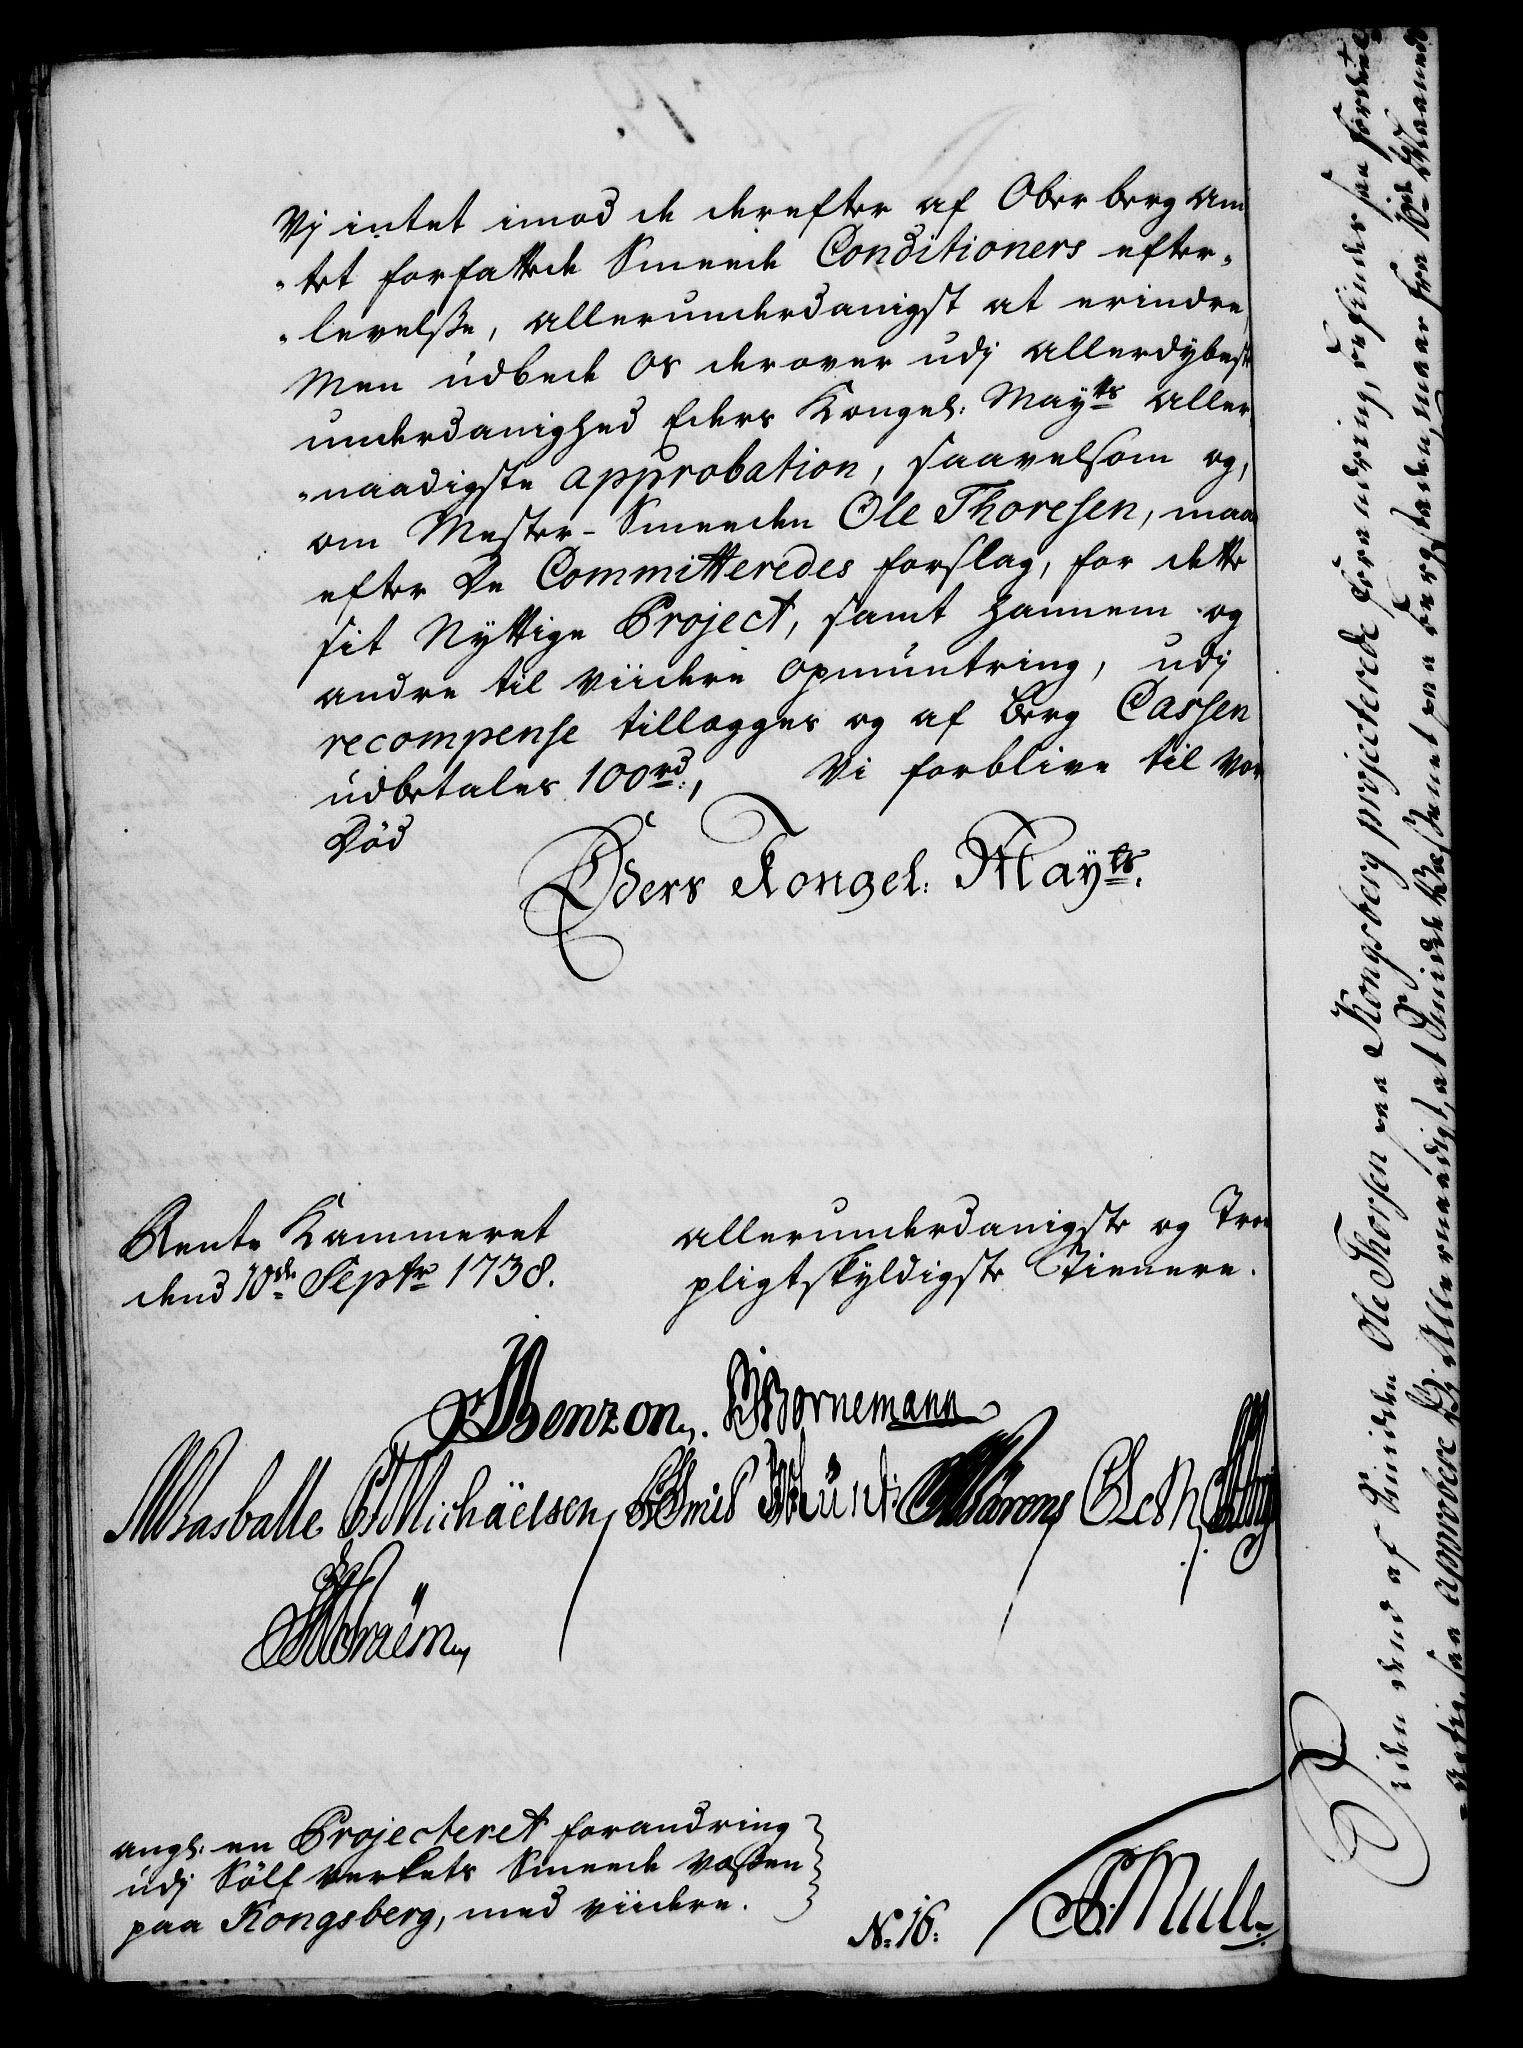 Vj intet imod de derefter af Ober berg am
-tet forfattede Smeede Conditioners efter-
-levelsse, allerunderdanigst at erindre,
Men udbede Os derover udj allerdybeste
underdanighed Eders Kongel: Mayts aller
-naadigste approbation, saavelsom og,
om Mester-Smeeden Ole Thoresen, maa
efter De Committeredes forslag, for dette
sit Nyttige Project, samt hannem og
andre til viidere opmuntring, udj
recompense tillegges og af Berg Cassen
udbetales 100 rd:,   Vi forblive til vor
Död
Eders Kongel: Mayts.
Rente Kammeret
dend 10de Septr 1738.
allerunderdanigste og Troe
pligtskyldigste Tienere.
Benzon. Bornemann
Basballe Michäelsen Smid Munk Bärens
Woraem
angl: en Projecteret forandring
udj Sölf verkets Smeede væssen
paa Kongsberg, med viidere.
N: 16:
Mull
Siden dend af Smideden Ole Thorsen paa Kongsberg projecterede forandring, befindes saa fordeel
-agtig, saa approbere Vi Allernaadigst, at Smide Væssenet paa bergstaden, maae fra 10de Maaned